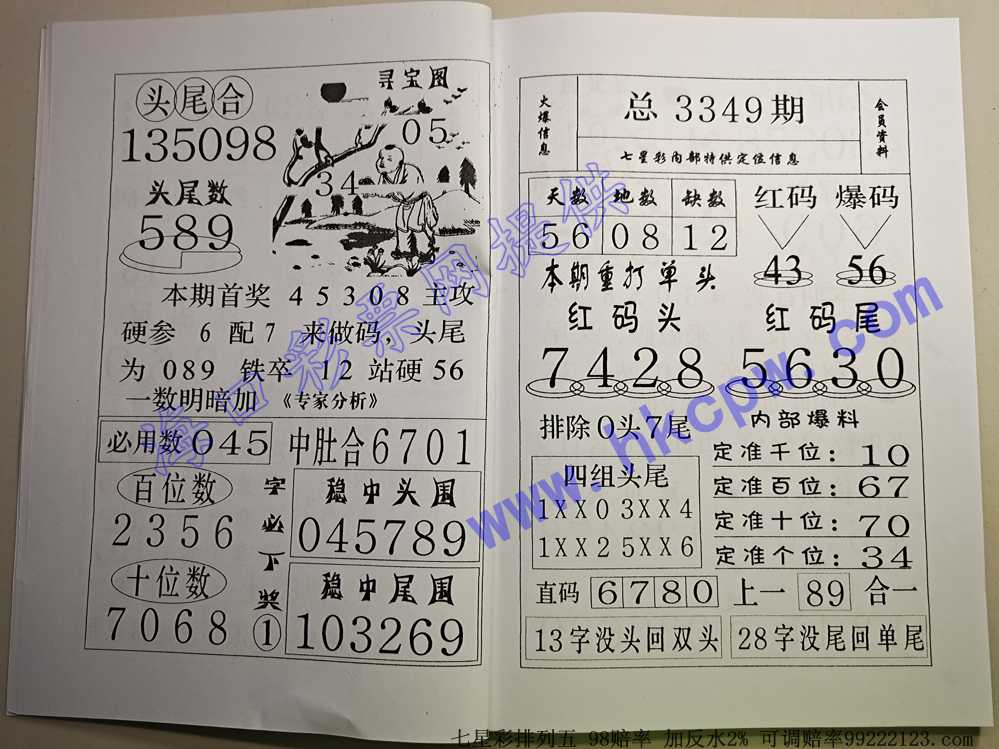 头尾合
135098
头尾数
589
寻宝图
05
34
本期首奖 45308 主攻
硬参 6 配 7 来做码，头尾
为 089 铁卒 12 站硬 56
一数明暗加 《专家分析》
必用数 045
中肚合 6701
百位数
2356
十位数
7068
字必下奖①
稳中头围
045789
稳中尾围
103269
火爆信息
总 3349 期
七星彩内部特供定位信息
会员资料
天数 地数 缺数
56 08 12
本期重打单头
红码 爆码
43 56
红码头
7428
红码尾
5630
排除0头7尾
四组头尾
1XX0 3XX4
1XX2 5XX6
内部爆料
定准千位：10
定准百位：67
定准十位：70
定准个位：34
直码 6780 上一 89 合一
13字没头回双头
28字没尾回单尾
海口彩票网提供
www.hkcpw.com
七星彩排列五 98赔率 加反水2% 可调赔率99222123.com